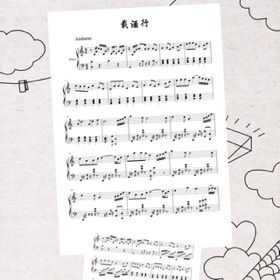 载酒行
Andante
Piano